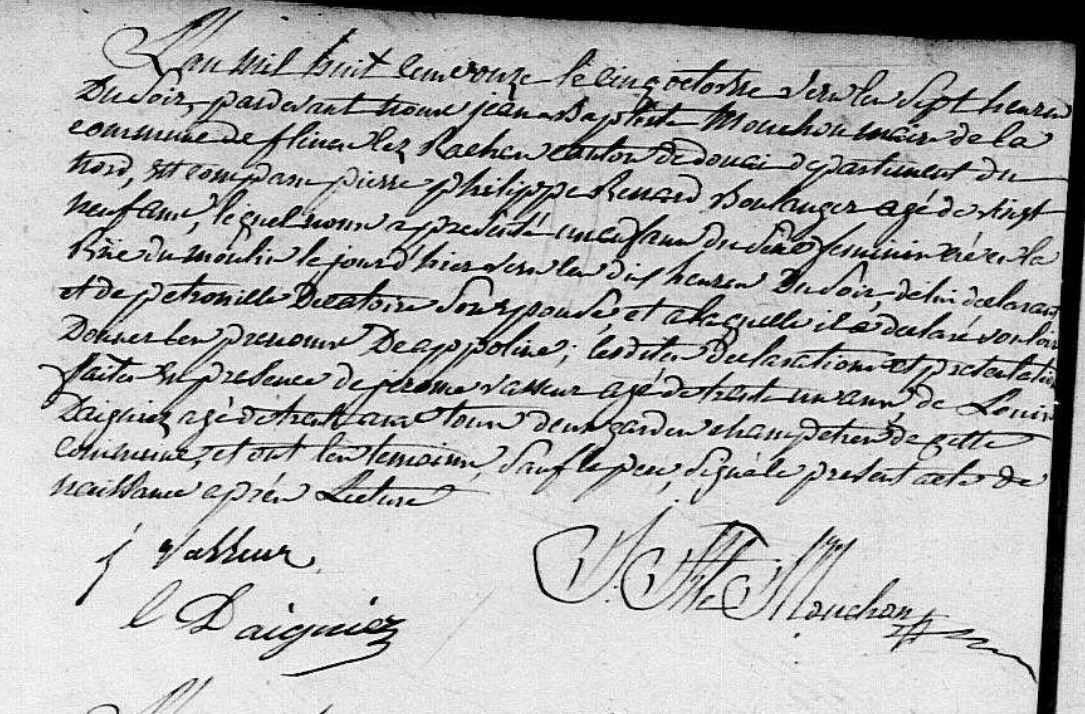 L'an mil huit cent onze le cinq octobre vers les sept heures
Du soir, pardevant nous jean Baptiste Mouchon maire de la
commune de flines lez Raches canton de douai departement du
nord, est comparu pierre philippe Renard Boulanger agé de vingt
neuf ans, lequel nous a presenté un enfant du sexe feminin née en la
Rue du moulin le jour d'hier vers les dix heures Du soir, de lui declarant
et de petronille Decatoire son epouse, et a laquelle il a declaré vouloir
Donner les prenoms De appoline; lesdites declarations et presentation
faites en presence de jerome vasseur agé de trente un ans, de Louis
Daigniez agé de trente ans tous deux gardes champetres de cette
commune, et ont les temoins, sauf le pere, signé le present acte de
naissance après Lecture
j vasseur
l Daigniez
J. Bte Mouchon